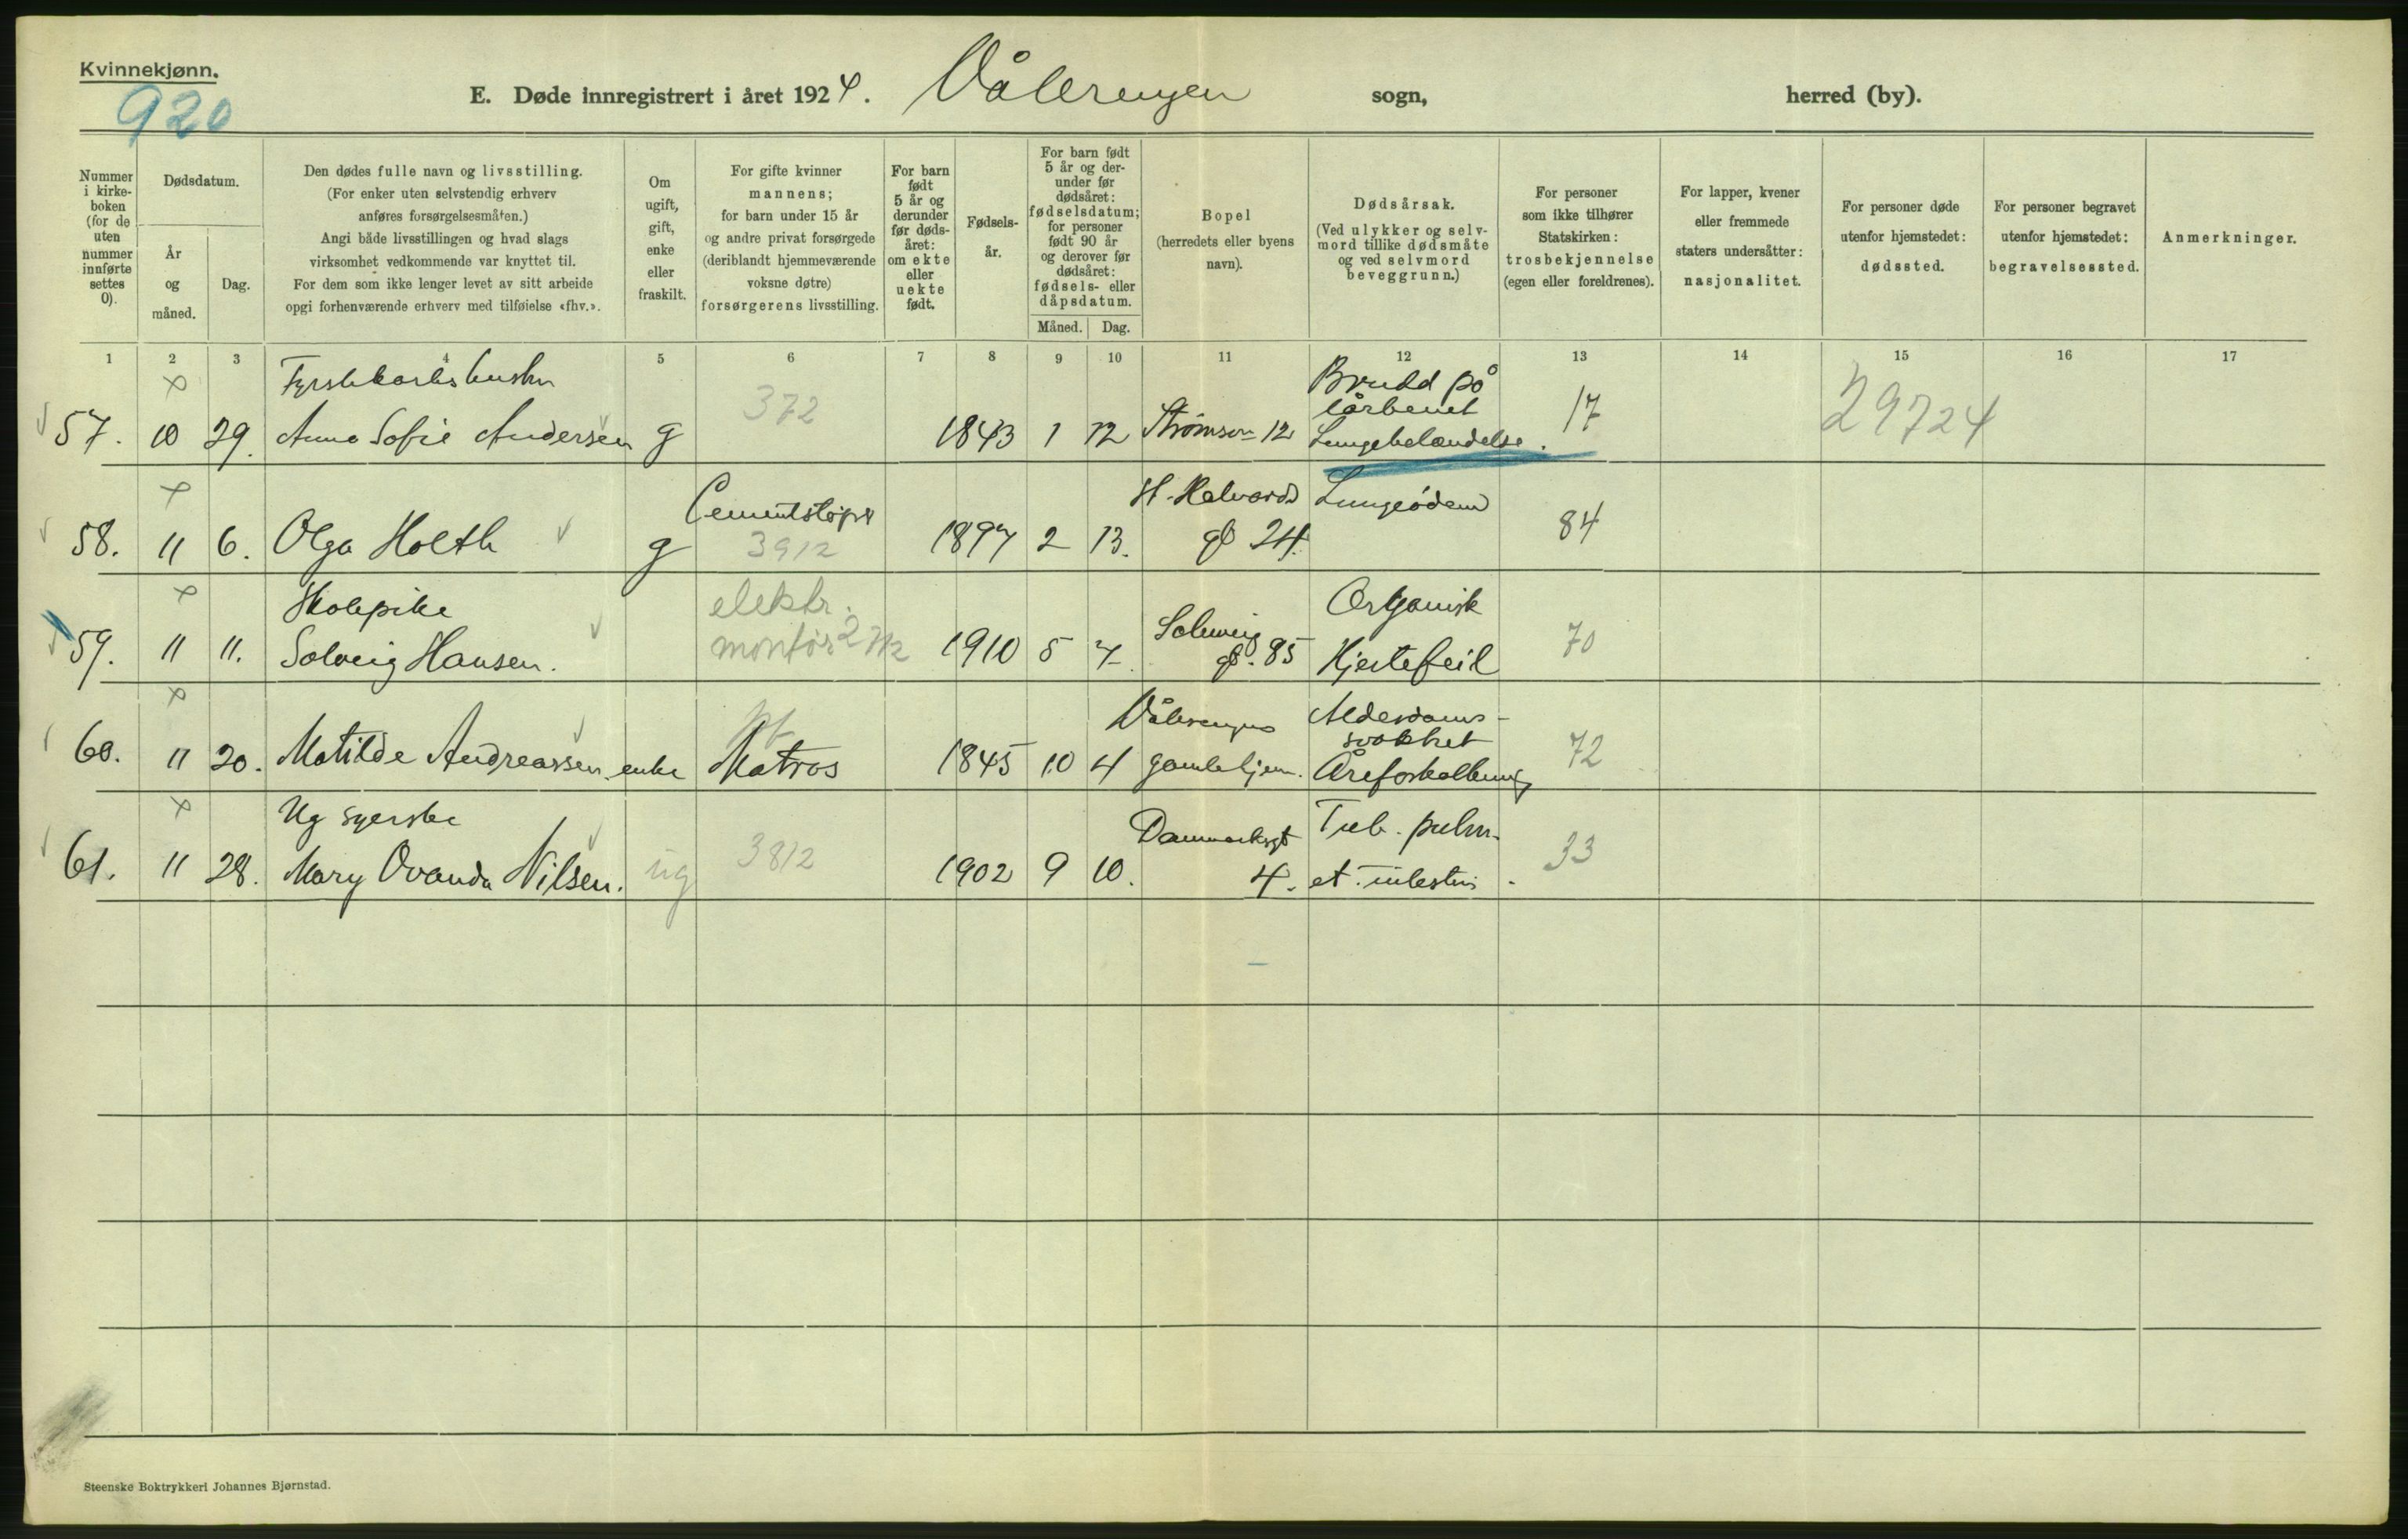 Kvinnekjønn.
920
E. Døde innregistrert i året 1924. Vålerengen sogn, herred (by).
Nummer i kirke- boken (for de uten nummer innførte settes 0).
Dødsdatum.
År og måned.
Dag.
Den dødes fulle navn og livsstilling.
(For enker uten selvstendig erhverv
anføres forsørgelsesmåten.)
Angi både livsstillingen og hvad slags
virksomhet vedkommende var knyttet til.
For dem som ikke lenger levet av sitt arbeide
opgi forhenværende erhverv med tilføielse «fhv.».
Om ugift, gift, enke eller fraskilt.
For gifte kvinner
mannens;
for barn under 15 år
og andre privat forsørgede
(deriblandt hjemmeværende
voksne døtre)
forsørgerens livsstilling.
For barn født 5 år og derunder før døds- året: om ekte eller uekte født.
Fødsels- år.
For barn født 5 år og der- under før dødsåret: fødselsdatum; for personer født 90 år og derover før dødsåret: fødsels- eller dåpsdatum.
Måned. Dag.
Bopel
(herredets eller byens
navn).
Dødsårsak.
(Ved ulykker og selv-
mord tillike dødsmåte
og ved selvmord
beveggrunn.)
For personer
som ikke tilhører
Statskirken:
trosbekjennelse
(egen eller foreldrenes).
For lapper, kvener
eller fremmede
staters undersåtter:
nasjonalitet.
For personer døde
utenfor hjemstedet:
dødssted.
For personer begravet
utenfor hjemstedet:
begravelsessted.
Anmerkninger.
1 2 3 4 5 6 7 8 9 10 11 12 13 14 15 16 17
Brudd på
57. 10 29. Anna Sofie Andersen g 372 1843 1 12 12 lårbenet Lungebetændelse. 17 29724
Cementstøper H. Halvards Lungeødem
58. 11 6. Olga Holth g 3912 1897 2 13. gt 24. 84
Skolepike elektr. Organisk
59. 11 11. Solveig Hansen. montør 1910 5 7. Solveig gt. 85 Hjertefeil 70
Vålerengens Alderdoms-
svakhet
60. 11 20. Matilde Andreassen enke Matros 1845 10 4 gamlehjem. Åreforkalkning 72
Ug syerske Danmarksgt Tub. pulm.
61. 11 28. Mary Ovanda Nilsen. ug 3812 1902 9 10. 4. et intestin. 33
Steenske Boktrykkeri Johannes Bjørnstad.